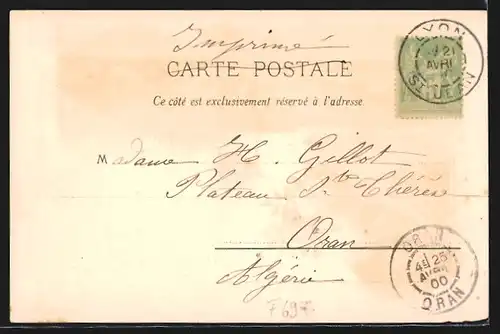 Imprimé
CARTE POSTALE
LYON
21
AVRIL
ST JEAN
Ce côté est exclusivement réservé à l'adresse.
Madame H. Gillot
Plateau Ste Thérèse
Oran
Algérie
ORAN
25
AVRIL
00
ORAN